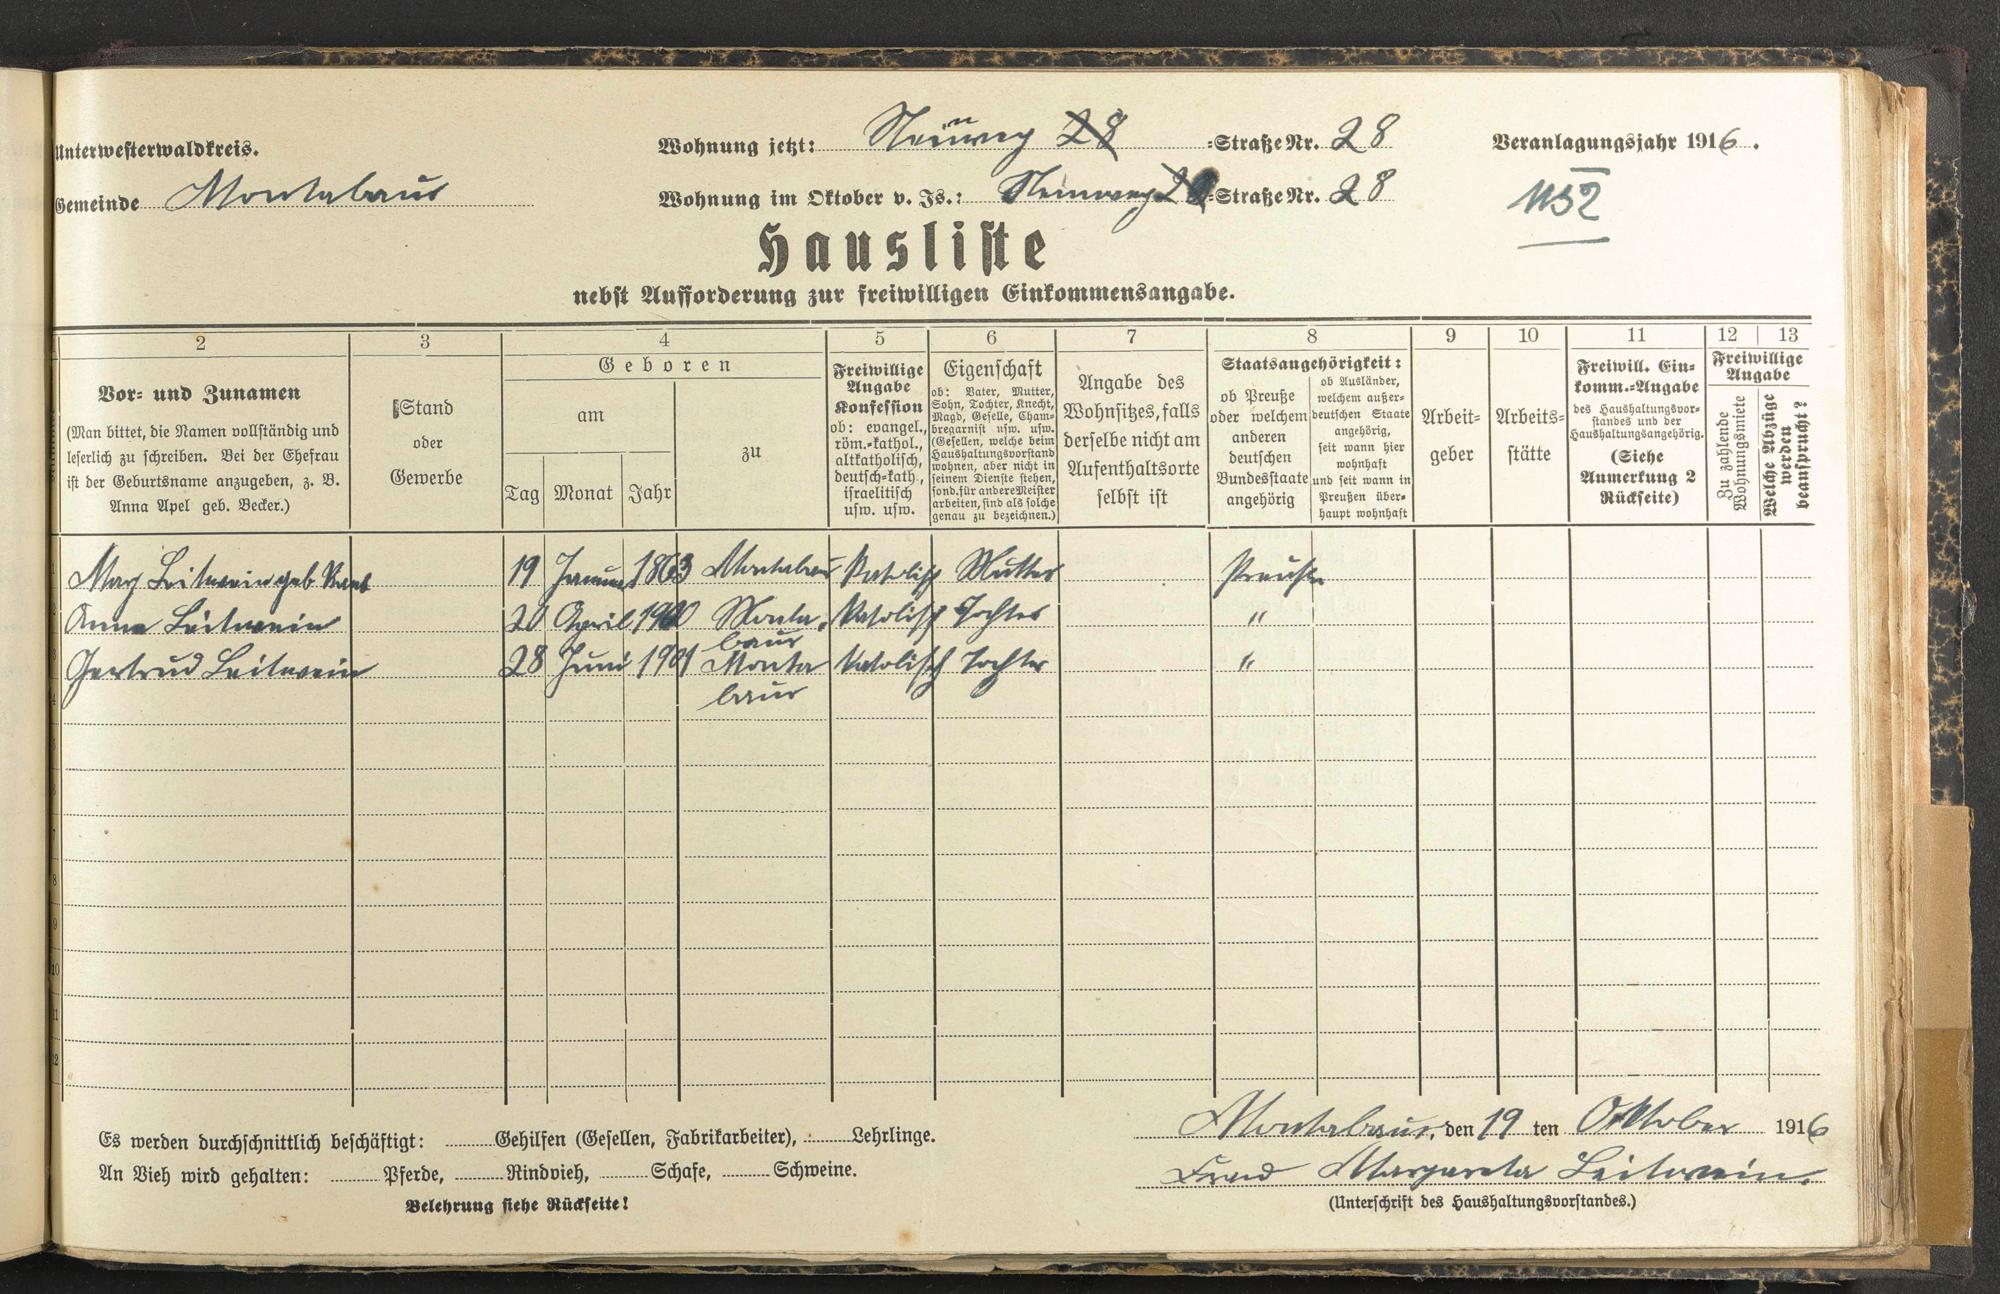 Unterwesterwaldkreis.
Wohnung jetzt: Steinweg 28 =Straße Nr. 28
Veranlagungsjahr 1916.
Gemeinde Montabaur
Wohnung im Oktober v. Js.: Steinweg =Straße Nr. 28
1152
Hausliste
nebst Aufforderung zur freiwilligen Einkommensangabe.
2 3 4 5 6 7 8 9 10 11 12 13
Vor- und Zunamen
(Man bittet, die Namen vollständig und
leserlich zu schreiben. Bei der Ehefrau
ist der Geburtsname anzugeben, z. B.
Anna Apel geb. Becker.)
Stand
oder
Gewerbe
Geboren
am
Tag Monat Jahr
zu
Freiwillige
Angabe
Konfession
ob: evangel.,
röm.-kathol.,
altkatholisch,
deutsch-kath.,
israelitisch
usw. usw.
Eigenschaft
ob: Vater, Mutter,
Sohn, Tochter, Knecht,
Magd, Geselle, Cham-
bregarnist usw. usw.
(Gesellen, welche beim
Haushaltungsvorstand
wohnen, aber nicht in
seinem Dienste stehen,
sond. für andere Meister
arbeiten, sind als solche
genau zu bezeichnen.)
Angabe des
Wohnsitzes, falls
derselbe nicht am
Aufenthaltsorte
selbst ist
Staatsangehörigkeit:
ob Preuße
oder welchem
anderen
deutschen
Bundesstaate
angehörig
ob Ausländer,
welchem außer-
deutschen Staate
angehörig,
seit wann hier
wohnhaft
und seit wann in
Preußen über-
haupt wohnhaft
Arbeit-
geber
Arbeits-
stätte
Freiwill. Ein-
komm.-Angabe
des Haushaltungsvor-
standes und der
Haushaltungsangehörig.
(Siehe
Anmerkung 2
Rückseite)
Freiwillige
Angabe
Zu zahlende
Wohnungsmiete
Welche Abzüge
werden
beansprucht?
Marg Leitwein geb. 19 Januar 1863 Montabaur Katolisch Mutter Preuße
Anna Leitwein 20 April 1900 Monta- Katolisch Tochter "
baur
Gertrud Leitwein 28 Juni 1901 Monta Katolisch Tochter "
baur
Es werden durchschnittlich beschäftigt: Gehilfen (Gesellen, Fabrikarbeiter), Lehrlinge.
An Vieh wird gehalten: Pferde, Rindvieh, Schafe, Schweine.
Belehrung siehe Rückseite!
Montabaur, den 19 ten Oktober 1916
Frau Margareta Leitwein.
(Unterschrift des Haushaltungsvorstandes.)